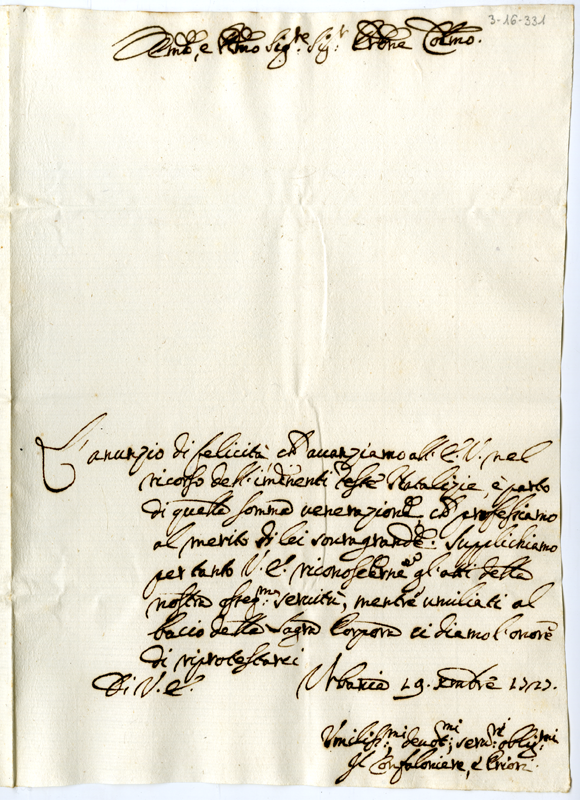 3-16-331
Emo, e Rmo Sig:re Sig:r Prone Colmo.
L'anunzio di felicità ch' auanziamo all' E. V. nel
ricorso dell' iminenti feste Natalizie, è parto
di quella somma uenerazione ch' professiamo
al merito di lei souragrande. Supplichiamo
per tanto V. E. riconoscerne gl' atti della
nostra osseq:ma seruitù, mentre umiliati al
bacio della Sagra Porpora ci diamo l' onore
di riprotestarci
Di V. E.
Urbania 19. Xmbre
Vmiliss:mi deuot:mi seru:ri oblig:mi
Il Confaloniere, e Priori